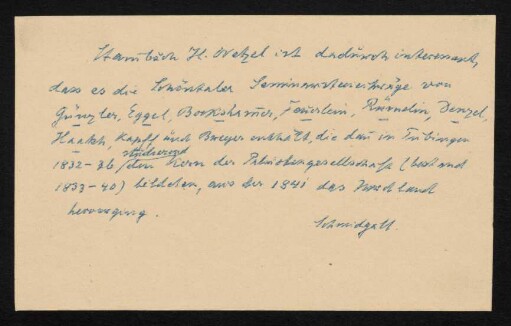 Stambuch H. Wetzel ist dadurch interessant,
dass es die Schöntaler Seminaristeneinträge von
Günzler, Eggel, Bockshamer, Faierlein, Rümelin, Denzel,
Haakh, Kapff und Breyer enthält, die dan in Tübingen
studierend
1832-36 / den Kern der Patriotengesellschaft (bestand
1833-40) bildeten, aus der 1841 das Hochland
hervorging.
Schmidgall.